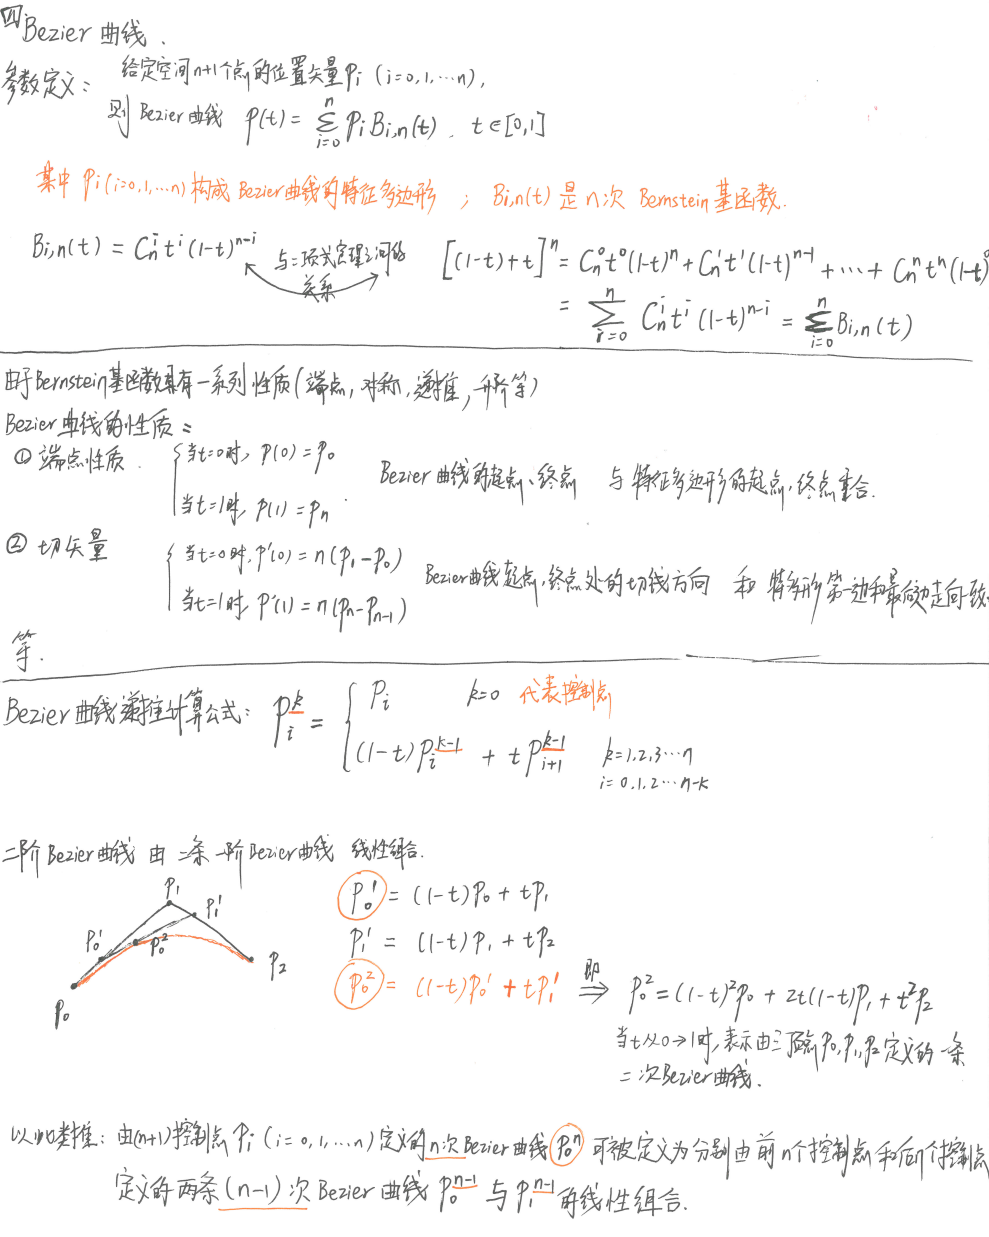 四 Bezier 曲线.
参数定义: 给定空间n+1个点的位置矢量Pi (i=0,1,…n),
则 Bezier曲线 P(t) = \sum_{i=0}^{n} P_i B_{i,n}(t). t∈[0,1]
其中 Pi(i=0,1,…n)构成 Bezier曲线的特征多边形 ; Bi,n(t) 是n次 Bernstein基函数.
B_{i,n}(t) = C_n^i t^i (1-t)^{n-i} 与二项式定理之间的关系 [(1-t)+t]^n = C_n^0 t^0 (1-t)^n + C_n^1 t^1 (1-t)^{n-1} + … + C_n^n t^n (1-t)^0
= \sum_{i=0}^{n} C_n^i t^i (1-t)^{n-i} = \sum_{i=0}^{n} B_{i,n}(t)
由于Bernstein基函数具有一系列性质(端点,对称,递推,升阶等)
Bezier曲线的性质:
① 端点性质. { 当t=0时, P(0)=P_0
当t=1时, P(1)=P_n. Bezier曲线的起点、终点 与特征多边形的起点,终点重合.
② 切矢量 { 当t=0时, P'(0)=n(P_1-P_0)
当t=1时, P'(1)=n(P_n-P_{n-1}) Bezier曲线起点,终点处的切线方向 和 特多形第一边和最后边走向一致
等.
Bezier曲线递推计算公式: P_i^k = { P_i k=0 代表控制点
(1-t)P_i^{k-1} + tP_{i+1}^{k-1} k=1,2,3…n
i=0,1,2…n-k
二阶Bezier曲线 由 二条一阶Bezier曲线 线性组合.
P_1
P_1^1
P_0^1
P_0^2
P_2
P_0
P_0^1 = (1-t)P_0 + tP_1
P_1^1 = (1-t)P_1 + tP_2
P_0^2 = (1-t)P_0^1 + tP_1^1 即⇒ P_0^2 = (1-t)^2 P_0 + 2t(1-t)P_1 + t^2 P_2
当t从0→1时,表示由三顶点P_0,P_1,P_2定义的一条
二次Bezier曲线.
以此类推: 由(n+1)控制点 Pi (i=0,1,…n)定义的n次Bezier曲线P_0^n可被定义为分别由前n个控制点和后n个控制点
定义的两条(n-1)次Bezier曲线 P_0^{n-1} 与P_1^{n-1}的线性组合.